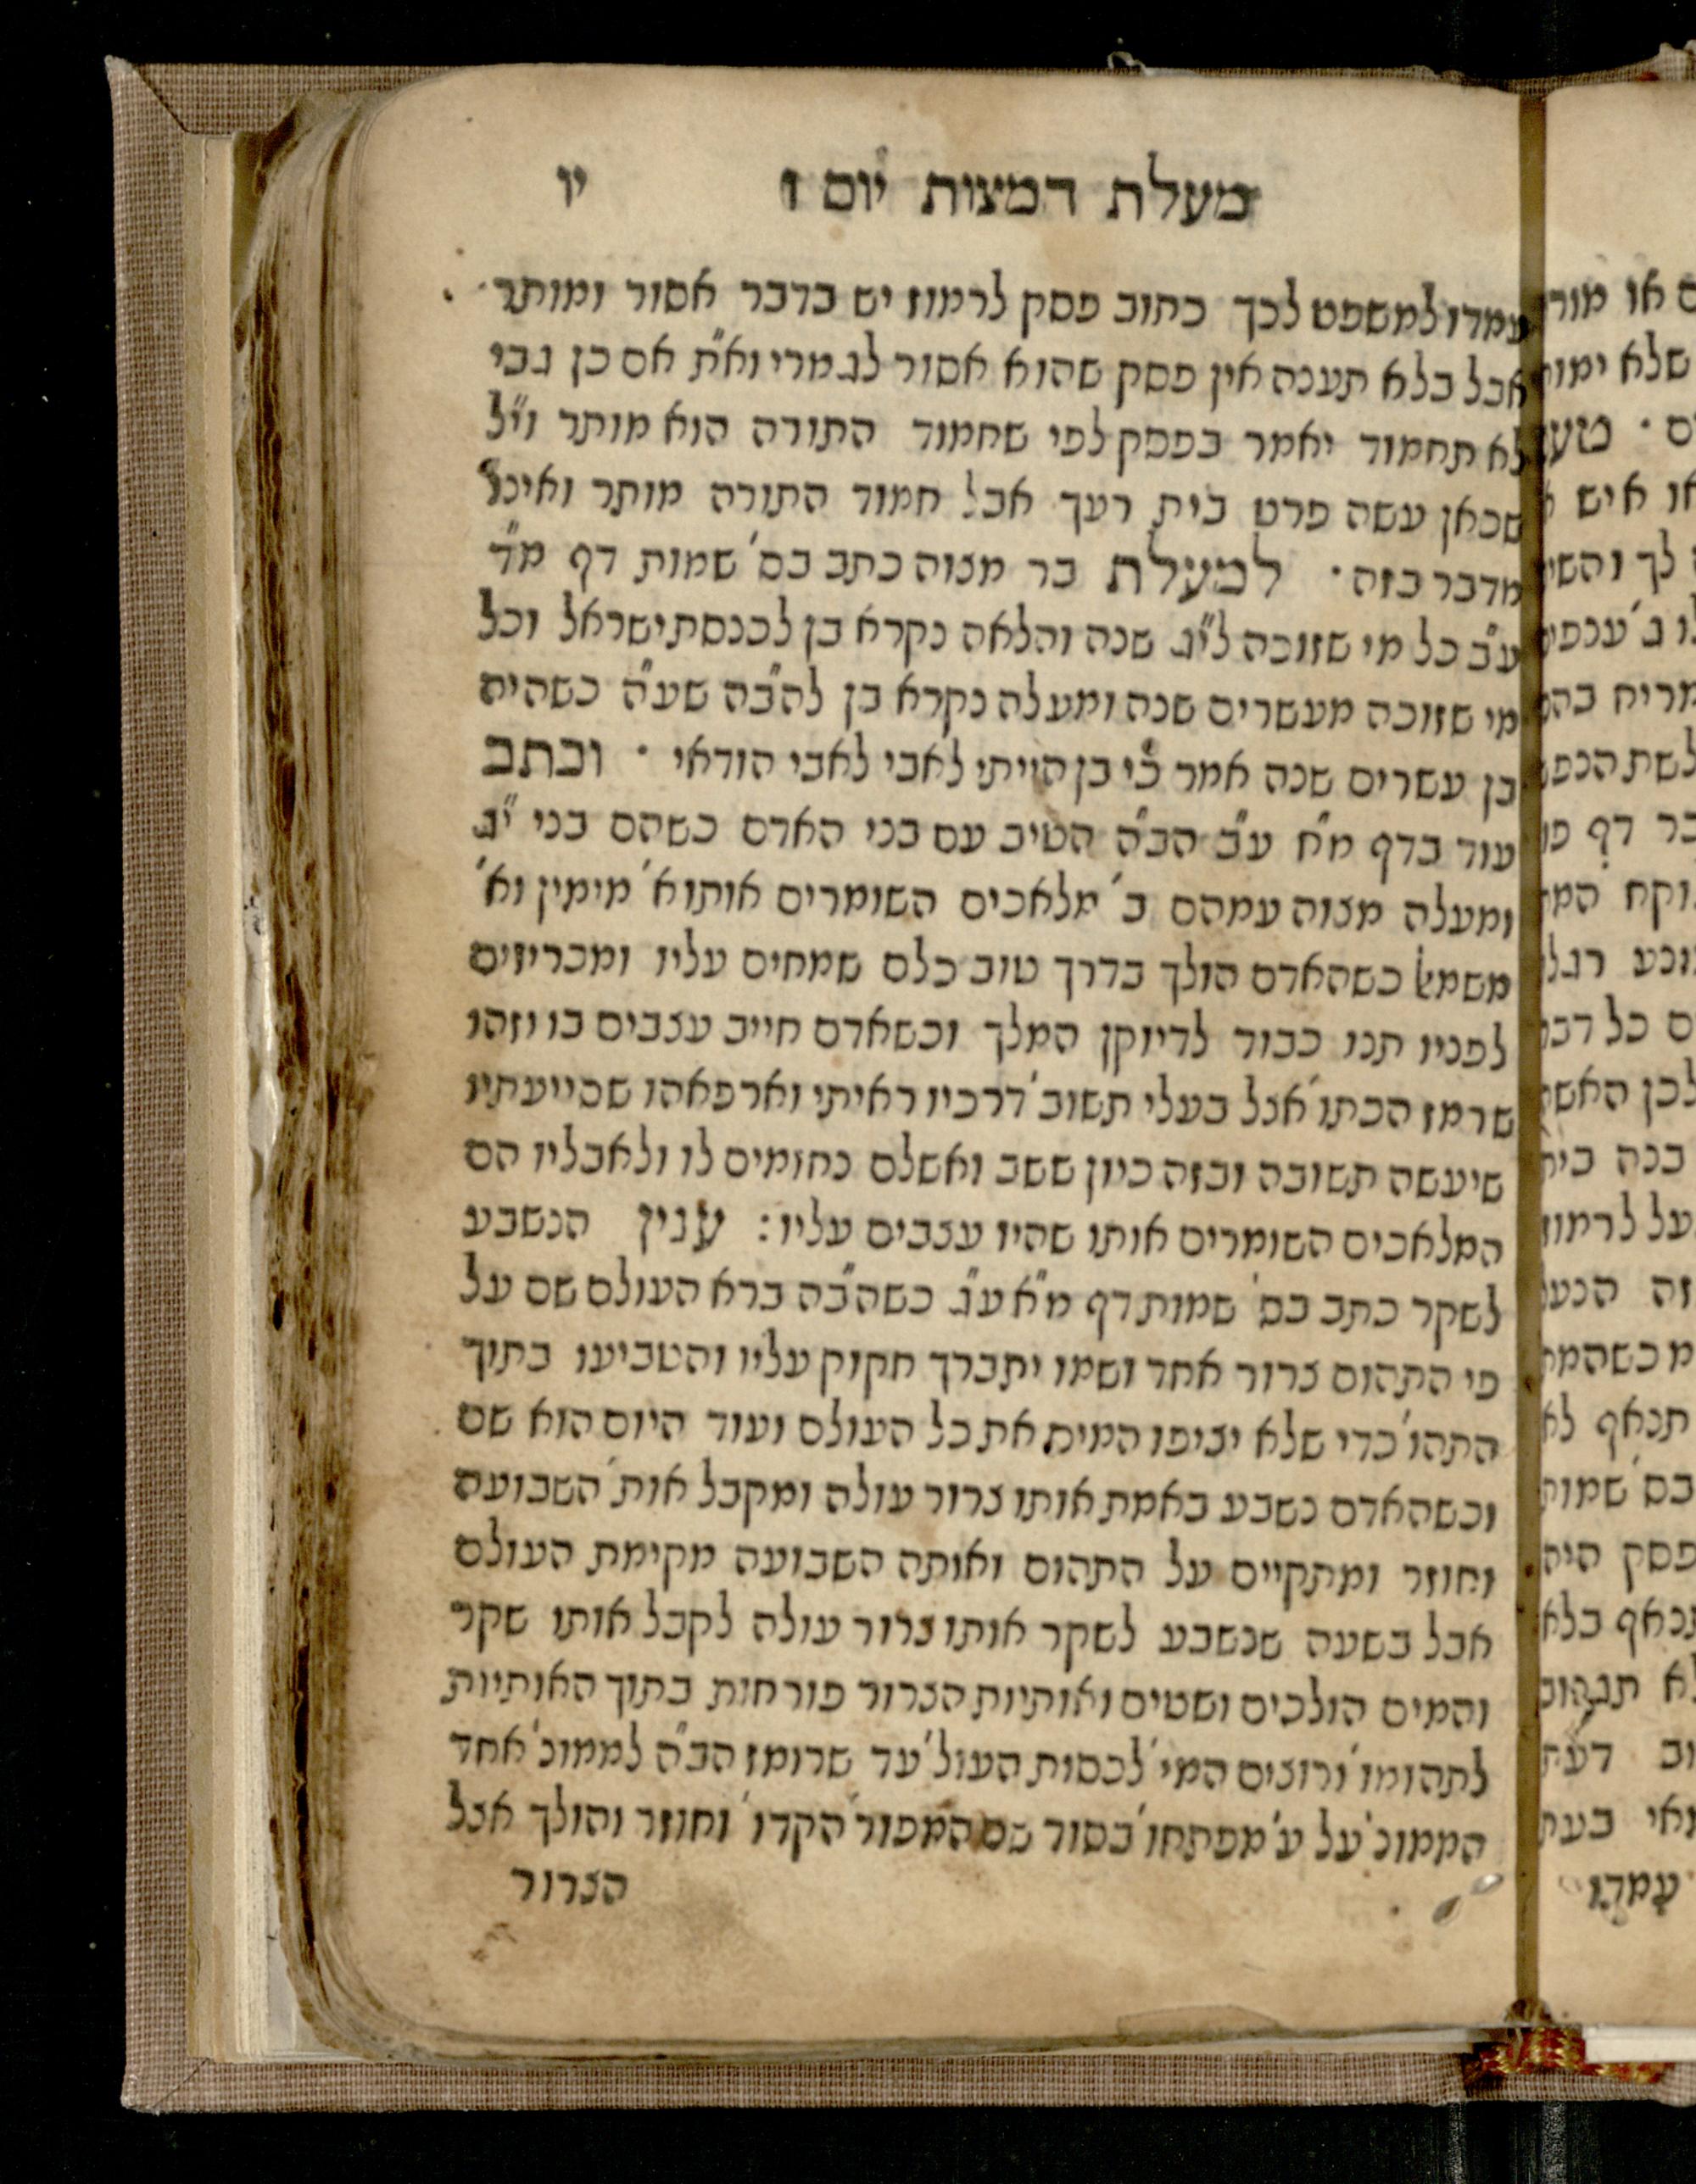 מעלת המצות יום ז יו
עמדו למשפט לכך כתוב פסק לרמוז יש בדבר אסור ומותר
אבל בלא תענה אין פסק שהוא אסור לגמרי וא"ת אם כן גבי
לא תחמוד יאמר בפסק לפי שחמוד התורה הוא מותר וי"ל
שכאן עשה פרט בית רעך אבל חמוד התורה מותר ואינו
מדבר בזה· למעלת בר מצוה כתב בס' שמות דף מ"ד
ע"ב כל מי שזוכה לי"ג שנה והלאה נקרא בן לכנסת ישראל וכל
מי שזוכה מעשרים שנה ומעלה נקרא בן להב"ה שע"ה כשהיה
בן עשרים שנה אמר כי בן הייתי לאבי לאבי הודאי · וכתב
עוד בדף מ"ח ע"ב הב"ה הטיב עם בני האדם כשהם בני י"ג
ומעלה מצוה עמהם ב' מלאכים השומרים אותו א' מימין וא'
משמא' כשהאדם הולך בדרך טוב כלם שמחים עליו ומכריזים
לפניו תנו כבוד לדיוקן המלך וכשאדם חייב עצבים בו וזהו
שרמז הכתו' אצל בעלי תשוב' דרכיו ראיתי וארפאהו שסייעתיו
שיעשה תשובה ובזה כיון ששב ואשלם נחומים לו ולאבליו הם
המלאכים השומרים אותו שהיו עצבים עליו: ענין הנשבע
לשקר כתב בס' שמות דף מ"א ע"ג כשהב"ה ברא העולם שם על
פי התהום צרור אחד ושמו יתברך חקוק עליו והטביעו בתוך
התהו' כדי שלא יציפו המים את כל העולם ועוד היום הוא שם
וכשהאדם נשבע באמת אותו צרור עולה ומקבל אות' השבועה
וחוזר ומתקיים על התהום ואותה השבועה מקימת העולם
אבל בשעה שנשבע לשקר אותו צרור עולה לקבל אותו שקר
והמים הולכים ושטים ואותיות הצרור פורחות בתוך האותיות
לתהומו' ורוצים המי' לכסות העול' עד שרומז הב"ה לממונ' אחד
הממונ' על ע' מפתחו' בסוד שם המפור' הקדו' וחוזר והולך אצל
הצרור